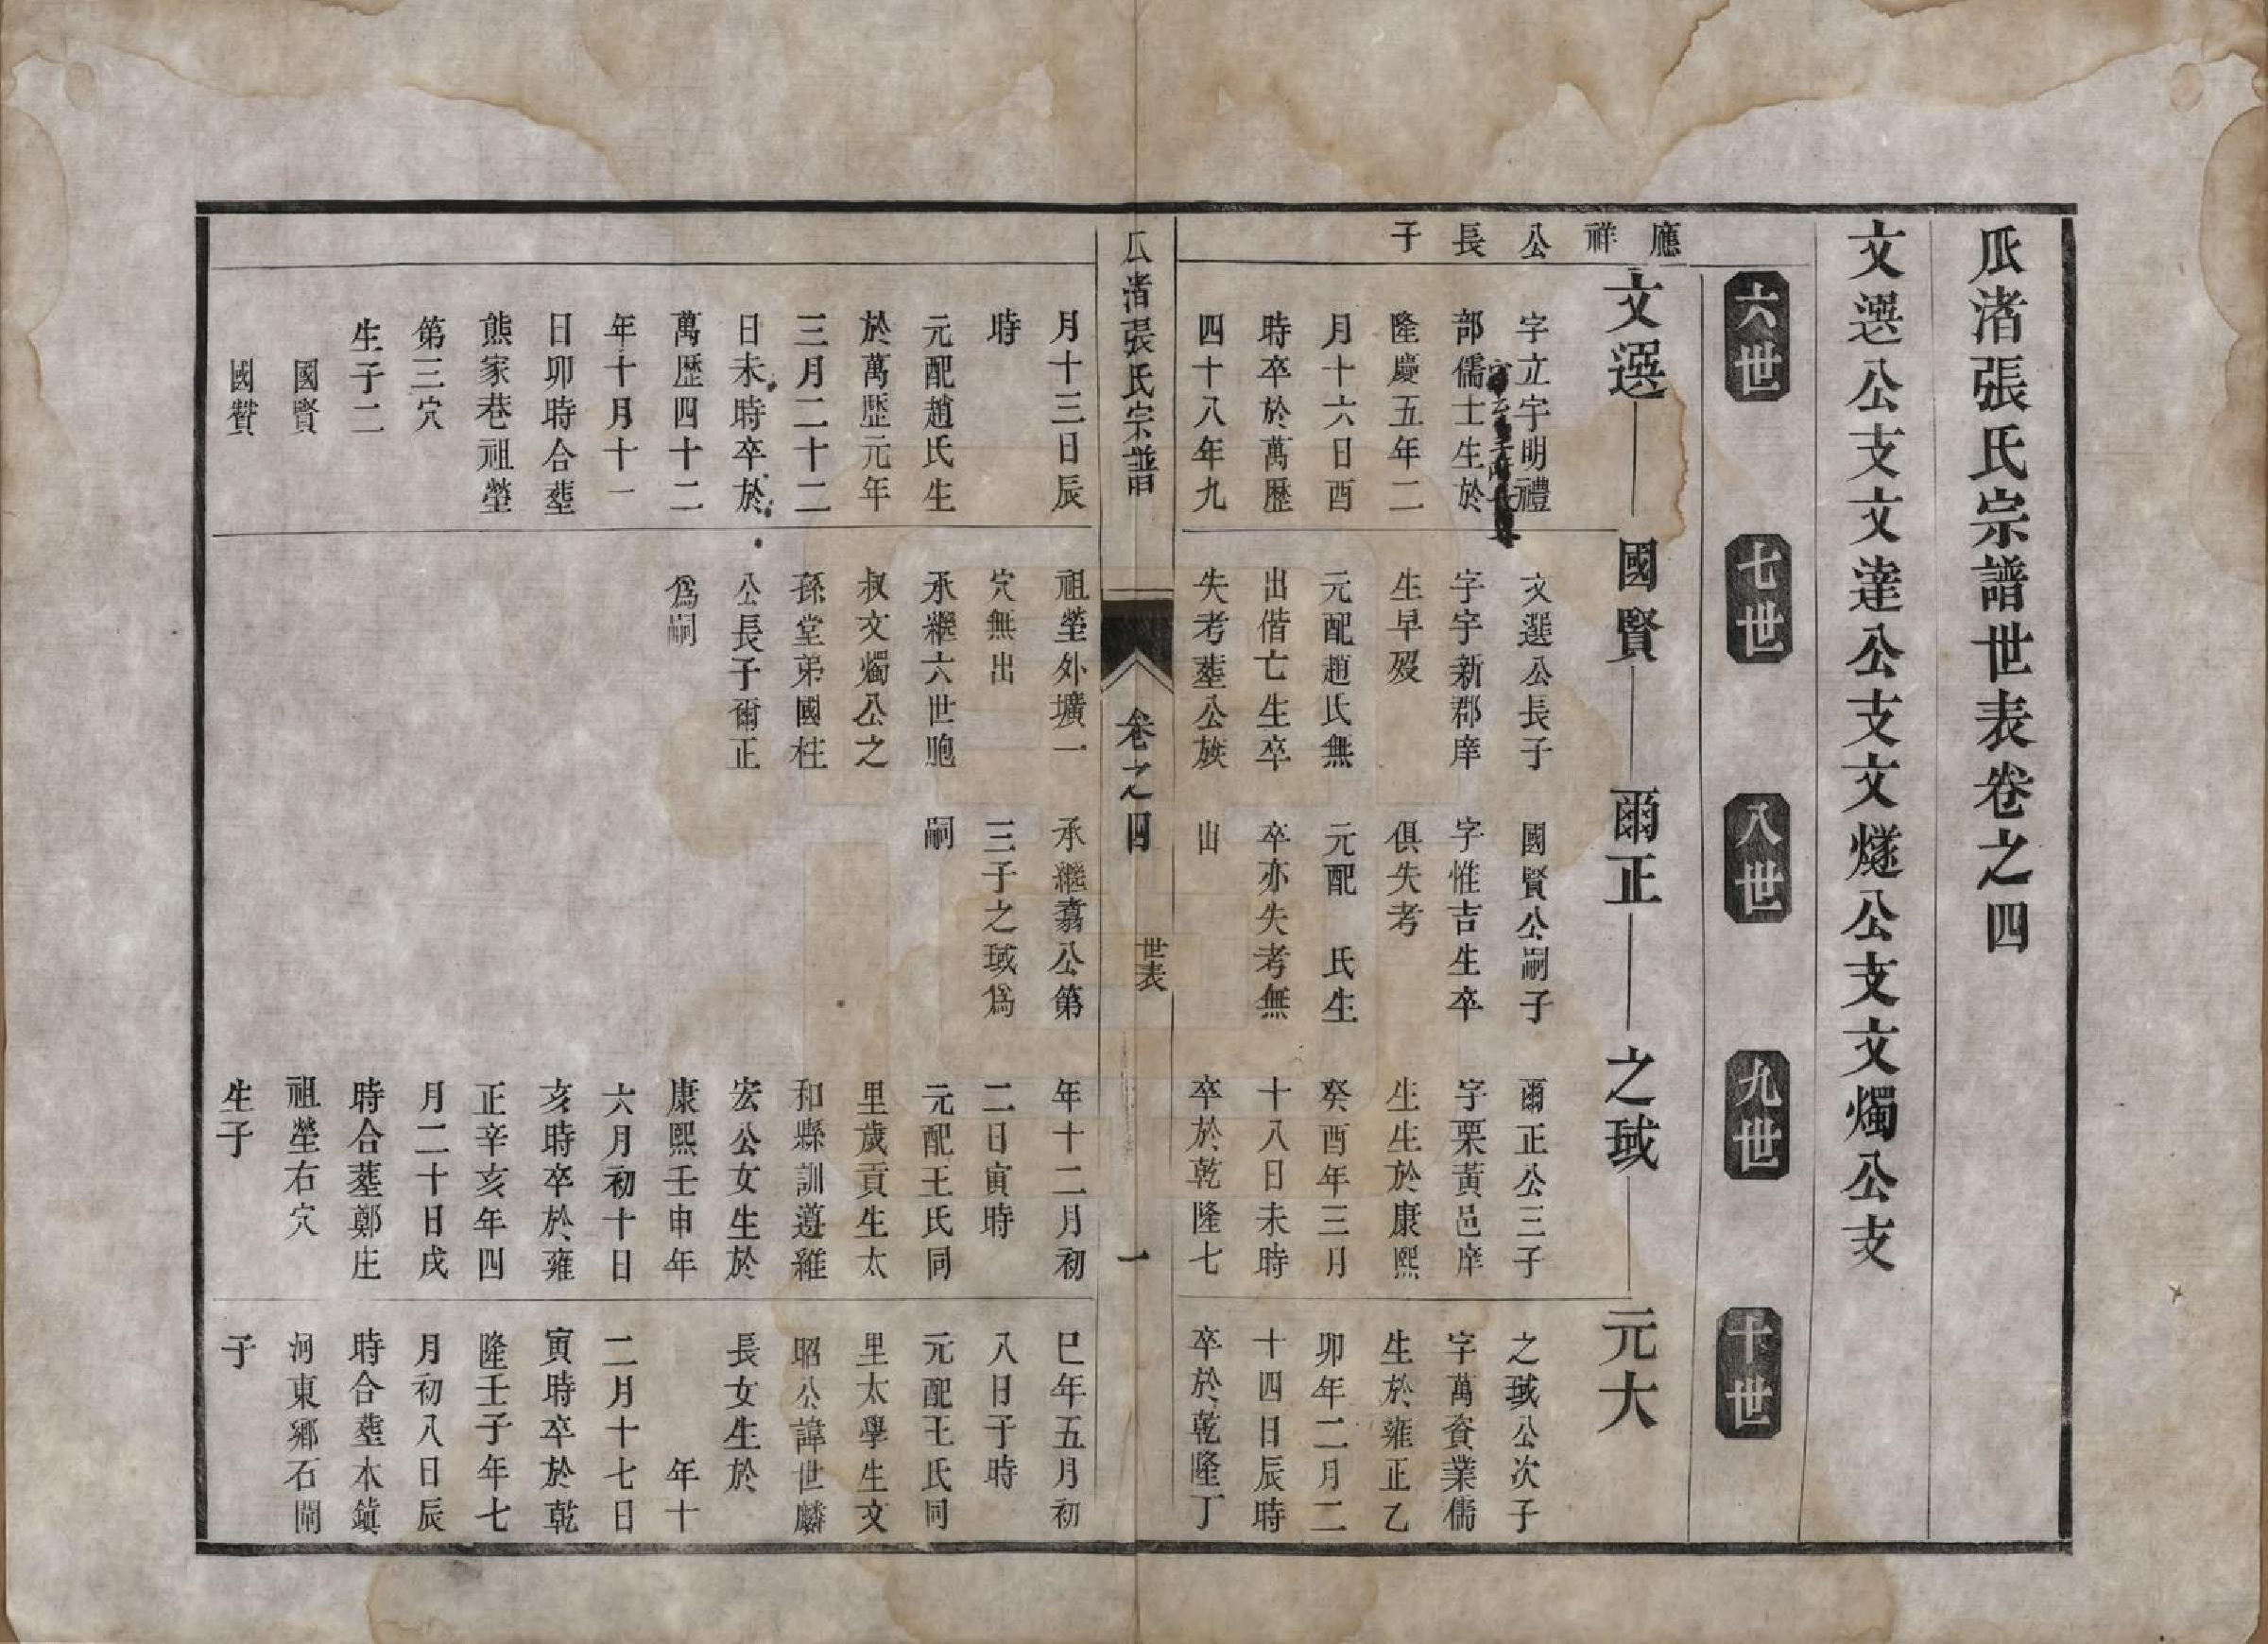 瓜渚張氏宗譜世表卷之四
文選公支文達公支文燧公支文燭公支
六世
七世
八世
九世
十世
應祥公長子
文選
國賢
爾正
之琙
元大
字立宇明禮
部儒士生於
隆慶五年二
月十六日酉
時卒於萬歷
四十八年九
文選公長子
字宇新郡庠
生早歿
元配趙氏無
出偕亡生卒
失考塟公族
國賢公嗣子
字惟吉生卒
俱失考
元配 氏生
卒亦失考無
山
爾正公三子
字栗黃邑庠
生生於康熙
癸酉年三月
十八日未時
卒於乾隆七
之琙公次子
字萬資業儒
生於雍正乙
卯年二月二
十四日辰時
卒於乾隆丁
瓜渚張氏宗譜
卷之四
世表
一
月十三日辰
時
元配趙氏生
於萬歷元年
三月二十二
日未時卒於
萬歷四十二
年十月十一
日卯時合塟
熊家巷祖塋
第三穴
生子二
國賢
國贊
祖塋外壙一
穴無出
承繼六世胞
叔文燭公之
孫堂弟國柱
公長子爾正
爲嗣
承繼翥公第
三子之琙爲
嗣
年十二月初
二日寅時
元配王氏同
里歲貢生太
和縣訓遵維
宏公女生於
康熙壬申年
六月初十日
亥時卒於雍
正辛亥年四
月二十日戌
時合塟鄭庄
祖塋右穴
生子
巳年五月初
八日子時
元配王氏同
里太學生文
昭公諱世麟
長女生於
年十
二月十七日
寅時卒於乾
隆壬子年七
月初八日辰
時合塟木鎮
河東鄉石閘
子